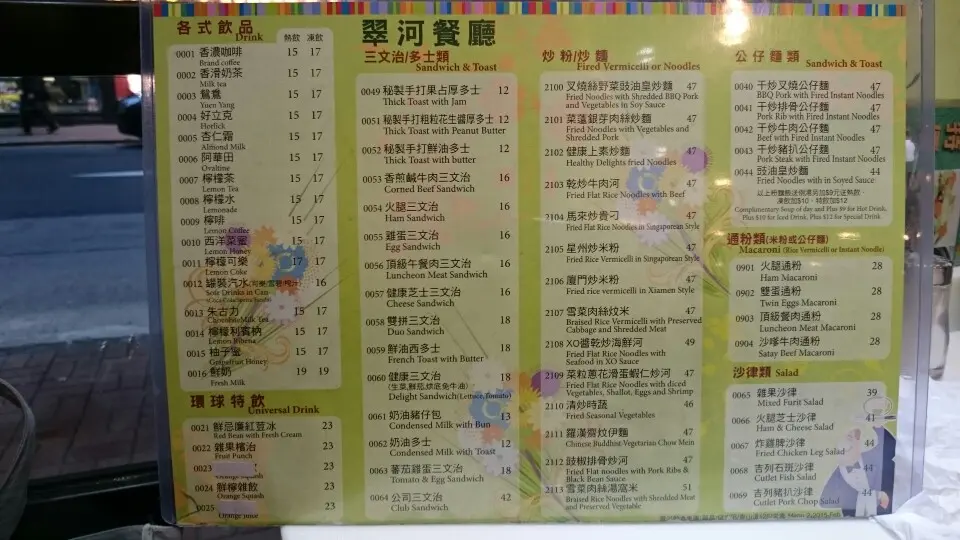 翠河餐廳
各式飲品
Drink
熱飲 凍飲
0001 香濃咖啡 15 17
Brand coffee
0002 香滑奶茶 15 17
Milk tea
0003 鴛鴦 15 17
Yuen Yang
0004 好立克 15 17
Horlick
0005 杏仁霜 15 17
Almond Milk
0006 阿華田 15 17
Ovaltine
0007 檸檬茶 15 17
Lemon Tea
0008 檸檬水 15 17
Lemonade
0009 檸啡 15 17
Lemon Coffee
0010 西洋菜蜜 15 17
Lemon Honey
0011 檸檬可樂 17 17
Lemon Coke
0012 罐裝汽水 16
Soft Drinks in Can
0013 朱古力 15 17
Chocolate Milk Tea
0014 檸檬利賓枘 15 17
Lemon Ribena
0015 柚子蜜 15 17
Grapefruit Honey
0016 鮮奶 19 19
Fresh Milk
環球特飲
Universal Drink
0021 鮮忌廉紅荳冰 23
Red Bean with Fresh Cream
0022 雜果檳治 23
Fruit Punch
0023 23
Orange Squash
0024 鮮檸雜飲 23
Orange Squash
0025 23
Orange juice
三文治/多士類
Sandwich & Toast
0049 秘製手打果占厚多士 12
Thick Toast with Jam
0051 秘製手打粗粒花生醬厚多士 12
Thick Toast with Peanut Butter
0052 秘製手打鮮油多士 12
Thick Toast with butter
0053 香煎鹹牛肉三文治 16
Corned Beef Sandwich
0054 火腿三文治 16
Ham Sandwich
0055 雞蛋三文治 16
Egg Sandwich
0056 頂級午餐肉三文治 16
Luncheon Meat Sandwich
0057 健康芝士三文治 16
Cheese Sandwich
0058 雙拼三文治 18
Duo Sandwich
0059 鮮油西多士 18
French Toast with Butter
0060 健康三文治 18
(生菜,鮮茄,烘底免牛油)
Delight Sandwich(Lettuce,Tomato)
0061 奶油豬仔包 13
Condensed Milk with Bun
0062 奶油多士 12
Condensed Milk with Toast
0063 蕃茄雞蛋三文治 18
Tomato & Egg Sandwich
0064 公司三文治 42
Club Sandwich
炒粉/炒麵
Fired Vermicelli or Noodles
2100 叉燒絲野菜豉油皇炒麵 47
Fried Noodles with Shredded BBQ Pork
and Vegetables in Soy Sauce
2101 菜薳銀芽肉絲炒麵 47
Fried Noodles with Vegetables and
Shredded Pork
2102 健康上素炒麵 47
Healthy Delights fried Noodles
2103 乾炒牛肉河 47
Fried Flat Rice Noodles with Beef
2104 馬來炒貴刁 47
Fried Flat Rice Noodles in Singaporean Style
2105 星州炒米粉 47
Fried Rice Vermicelli in Singaporean Style
2106 廈門炒米粉 47
Fried rice vermicelli in Xiamen Style
2107 雪菜肉絲炆米 47
Braised Rice Vermicelli with Preserved
Cabbage and Shredded Meat
2108 XO醬乾炒海鮮河 49
Fried Flat Rice Noodles with
Seafood in XO Sauce
2109 菜粒蔥花滑蛋蝦仁炒河 47
Fried Flat Rice Noodles with diced
Vegetables, Shallot, Eggs and Shrimp
2110 清炒時蔬 46
Fried Seasonal Vegetables
2111 羅漢齋炆伊麵 47
Chinese Buddhist Vegetarian Chow Mein
2112 豉椒排骨炒河 47
Fried Flat noodles with Pork Ribs &
Black Bean Sauce
2113 雪菜肉絲湯窩米 51
Braised Rice Noodles with Shredded Meat
and Preserved Vegetable
公仔麵類
Sandwich & Toast
0040 干炒叉燒公仔麵 47
BBQ Pork with Fired Instant Noodles
0041 干炒排骨公仔麵 47
Pork Rib with Fired Instant Noodles
0042 干炒牛肉公仔麵 47
Beef with Fired Instant Noodles
0043 干炒豬扒公仔麵 47
Pork Steak with Fired Instant Noodles
0044 豉油皇炒麵 44
Fried Noodles with in Soyed Sauce
以上粉麵熱送例湯另加$9元送熱飲，
凍飲加$10，特飲加$12
Complimentary Soup of day and Plus $9 for Hot Drink,
Plus $10 for Iced Drink, Plus $12 for Special Drink.
通粉類(米粉或公仔麵)
Macaroni (Rice Vermicelli or Instant Noodle)
0901 火腿通粉 28
Ham Macaroni
0902 雙蛋通粉 28
Twin Eggs Macaroni
0903 頂級餐肉通粉 28
Luncheon Meat Macaroni
0904 沙嗲牛肉通粉 28
Satay Beef Macaroni
沙律類 Salad
0065 雜果沙律 39
Mixed Furit Salad
0066 火腿芝士沙律 41
Ham & Cheese Salad
0067 炸雞脾沙律 44
Fried Chicken Leg Salad
0068 吉列石斑沙律 44
Cutlet Fish Salad
0069 吉列豬扒沙律 44
Cutlet Pork Chop Salad